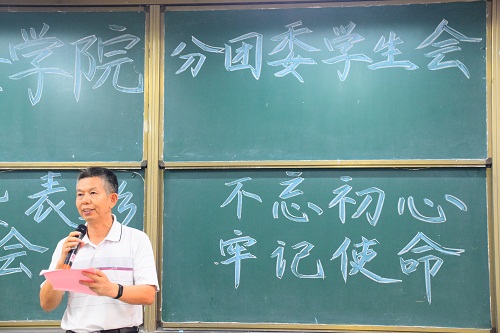 学院 分团委学生会
表彰 不忘初心
会 牢记使命